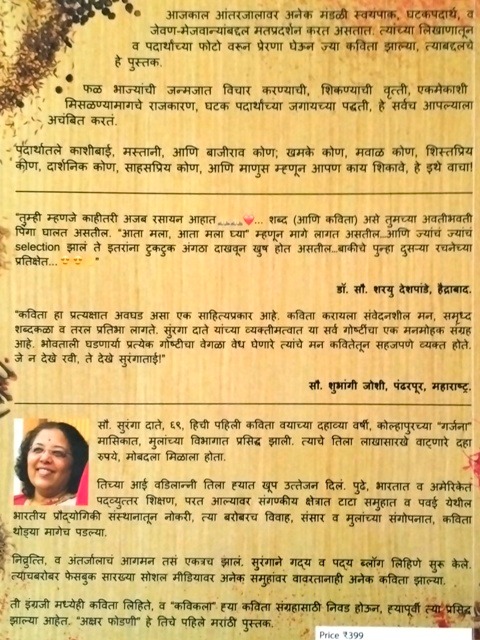 आजकाल आंतरजालावर अनेक मंडळी स्वयंपाक, घटकपदार्थ, व
जेवण-मेजवान्यांबद्दल मतप्रदर्शन करत असतात. त्यांच्या लिखाणातून
व पदार्थांच्या फोटो वरून प्रेरणा घेऊन ज्या कविता झाल्या, त्याबद्दलचे
हे पुस्तक.
फळ भाज्यांची जन्मजात विचार करण्याची, शिकण्याची वृत्ती, एकमेकाशी
मिसळण्यामागचे राजकारण, घटक पदार्थांच्या जगायच्या पद्धती, हे सर्वच आपल्याला
अचंबित करतं.
पदार्थातले काशीबाई, मस्तानी, आणि बाजीराव कोण; खमके कोण, मवाळ कोण, शिस्तप्रिय
कोण, दार्शनिक कोण, साहसप्रिय कोण, आणि माणुस म्हणून आपण काय शिकावे, हे इथे वाचा!
"तुम्ही म्हणजे काहीतरी अजब रसायन आहात🙏🙏🙏❤️... शब्द (आणि कविता) असे तुमच्या अवतीभवती
पिंगा घालत असतील. "आता मला, आता मला घ्या" म्हणून मागे लागत असतील...आणि ज्यांचं ज्यांचं
selection झालं ते इतरांना टुकटुक अंगठा दाखवून खुष होत असतील...बाकीचे पुन्हा दुसऱ्या रचनेच्या
प्रतिक्षेत...😍😍 "
डॉ. सौ. शरयु देशपांडे, हैद्राबाद.
"कविता हा प्रत्यक्षात अवघड असा एक साहित्यप्रकार आहे. कविता करायला संवेदनशील मन, समृध्द
शब्दकळा व तरल प्रतिभा लागते. सुरंगा दाते यांच्या व्यक्तीमत्वात या सर्व गोष्टींचा एक मनमोहक संग्रह
आहे. भोवताली घडणार्या प्रत्येक गोष्टीचा वेगळा वेध घेणारे त्यांचे मन कवितेतून सहजपणे व्यक्त होते.
जे न देखे रवी, ते देखे सुरंगाताई!"
सौ. शुभांगी जोशी, पंढरपूर, महाराष्ट्र.
सौ. सुरंगा दाते, ६९, हिची पहिली कविता वयाच्या दहाव्या वर्षी, कोल्हापुरच्या "गर्जना"
मासिकात, मुलांच्या विभागात प्रसिद्ध झाली. त्याचे तिला लाखासारखे वाटणारे दहा
रुपये, मोबदला मिळाला होता.
तिच्या आई वडिलान्नी तिला ह्यात खूप उत्तेजन दिलं. पुढे, भारतात व अमेरिकेत
पदव्युत्तर शिक्षण, परत आल्यावर संगणकीय क्षेत्रात टाटा समुहात व पवई येथील
भारतीय प्रौद्योगिकी संस्थानातून नोकरी, त्या बरोबरच विवाह, संसार व मुलांच्या संगोपनात, कविता
थोड्या मागेच पडल्या.
निवृत्ति, व अंतर्जालाचं आगमन तसं एकत्रच झालं. सुरंगाने गद्य व पद्य ब्लॉग लिहिणे सुरू केले.
त्याचबरोबर फेसबुक सारख्या सोशल मीडियावर अनेक समुहांवर वावरतानाही अनेक कविता झाल्या.
ती इंग्रजी मध्येही कविता लिहिते, व "कविकला" ह्या कविता संग्रहासाठी निवड होऊन, ह्यापूर्वी त्या प्रसिद्ध
झाल्या आहेत. "अक्षर फोडणी" हे तिचे पहिले मराठी पुस्तक.
Price ₹399